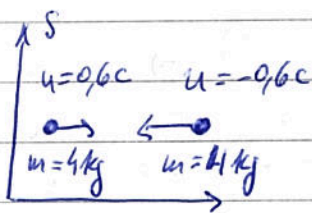 S
u=0,6c u=-0,6c
m=4kg m=4kg